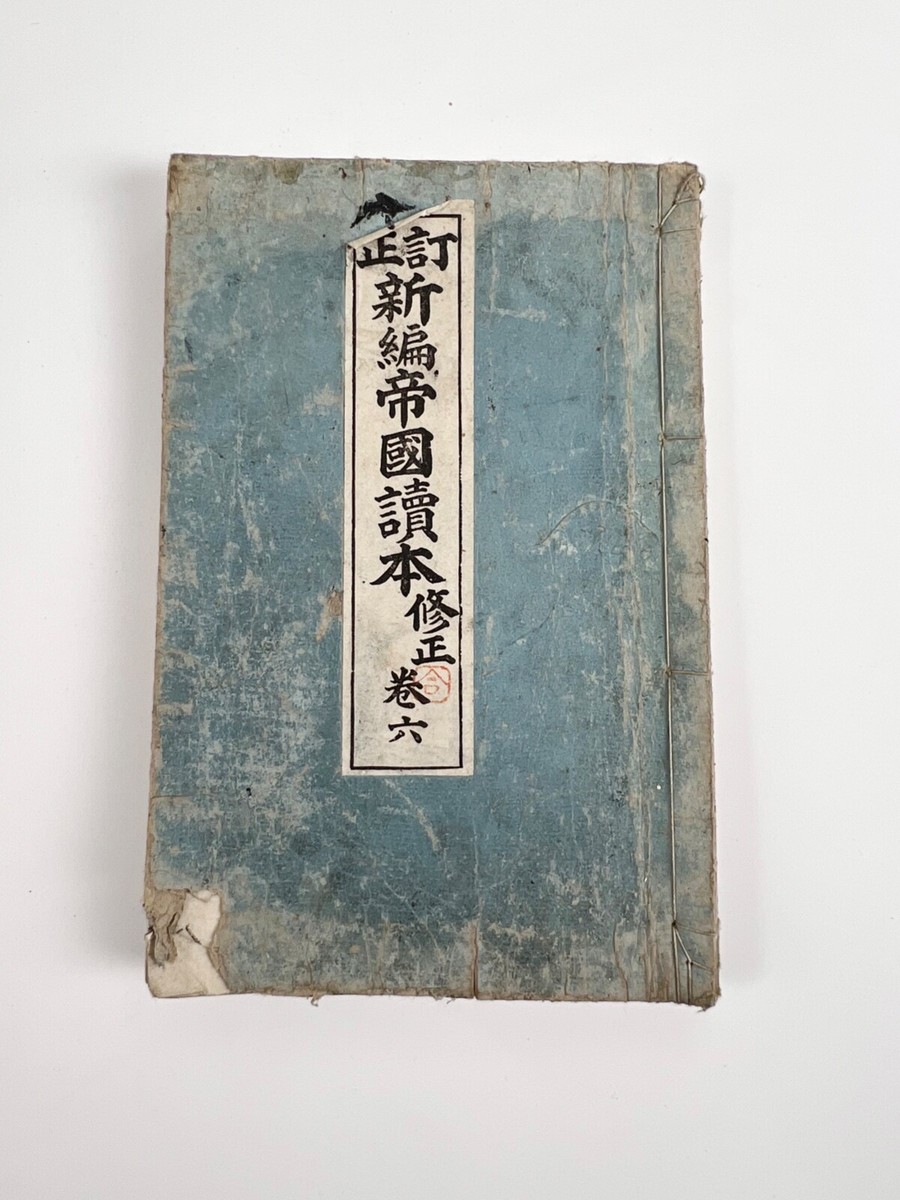 訂正
新編帝國讀本
修正
卷六
合